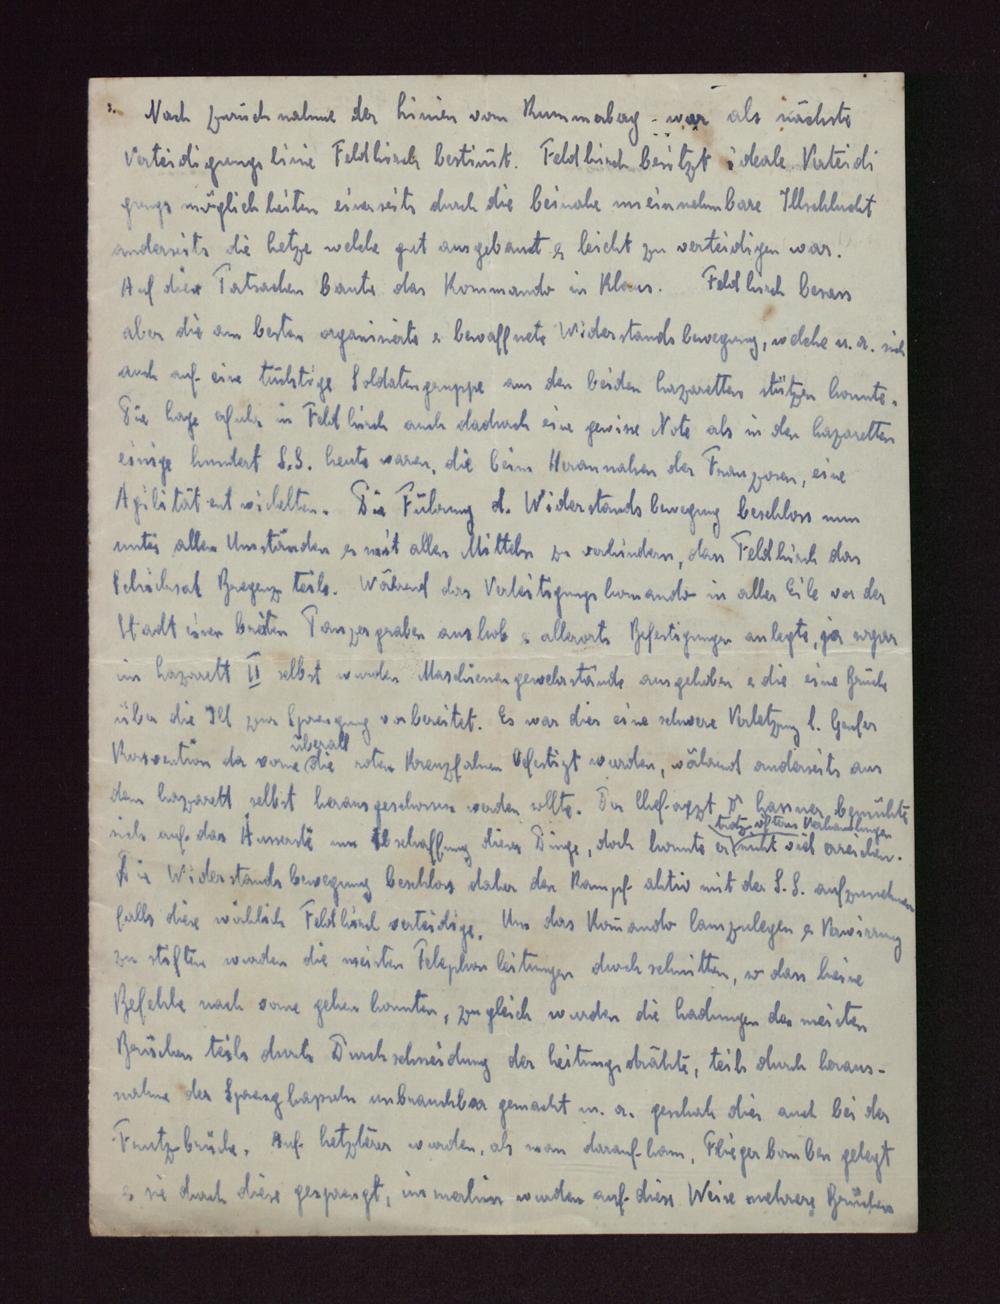 3. Nach zurücknahme der Linien vom Kummaberg war als nächste
Verteidigungslinie Feldkirch bestimt. Feldkirch besitzt ideale Verteidi
gungs möglichkeiten einerseits durch die beinahe uneinnehmbare Illschlucht
anderseits die Letze welche gut ausgebaut & leicht zu verteidigen war.
Auf diese Tatsachen baute das Kommando in Klaus. Feldkirch besass
aber die am besten organisierte & bewaffnete Widerstandsbewegung, welche u. a. sich
auch auf eine tüchtige Soldatengruppe aus den beiden Lazaretten stützen konnte.
Die Lage erfuhr in Feldkirch auch dadurch eine gewisse Note als in den Lazaretten
einige hundert S.S. Leute waren, die beim Herannahen der Franzosen, eine
Agilität entwickelten. Die Führung d. Widerstandsbewegung beschloss nun
unter allen Umständen & mit allen Mitteln zu verhindern, dass Feldkirch das
Schicksal Bregenz teile. Während das Verteitigungskomando in aller Eile vor der
Stadt einen breiten Panzergraben aushob & allerorts Befestigungen anlegte, ja sogar
im Lazarett II selbst wurden Maschienengewehrstände ausgehoben & die eine Brücke
über die Ill zur Sprengung vorbereitet. Es war dies eine schwere Verletzung d. Genfer
Konvention da vorne überall die roten Kreuzfahnen befestigt wurden, während anderseits aus
dem Lazarett selbst herausgeschossen werden sollte. Der Chef-arzt Dr bemühte
sich auf das Äuserste um Abschaffung dieser Dinge, doch konnte er trotz öfteren Verhandlungen nicht viel erreichen.
Die Widerstandsbewegung beschloss daher den Kampf aktiv mit der S.S. aufzunehmen
falls diese wirklich Feldkirch verteidige. Um das Komando lamzulegen & Verwirrung
zu stiften wurden die meisten Telephonleitungen durchschnitten, so dass keine
Befehle nach vorne gehen konnten, zugleich wurden die Ladungen der meisten
Brücken teils durch Durchschneidung der Leitungsdrähte, teils durch heraus-
nahme der Sprengkapseln unbrauchbar gemacht u. a. geschah dies auch bei der
Frutzbrücke. Auf letzterer wurden, als man darauf kam, Fliegerbomben gelegt
& sie durch diese gesprengt, immerhin wurden auf diese Weise mehrere Brücken